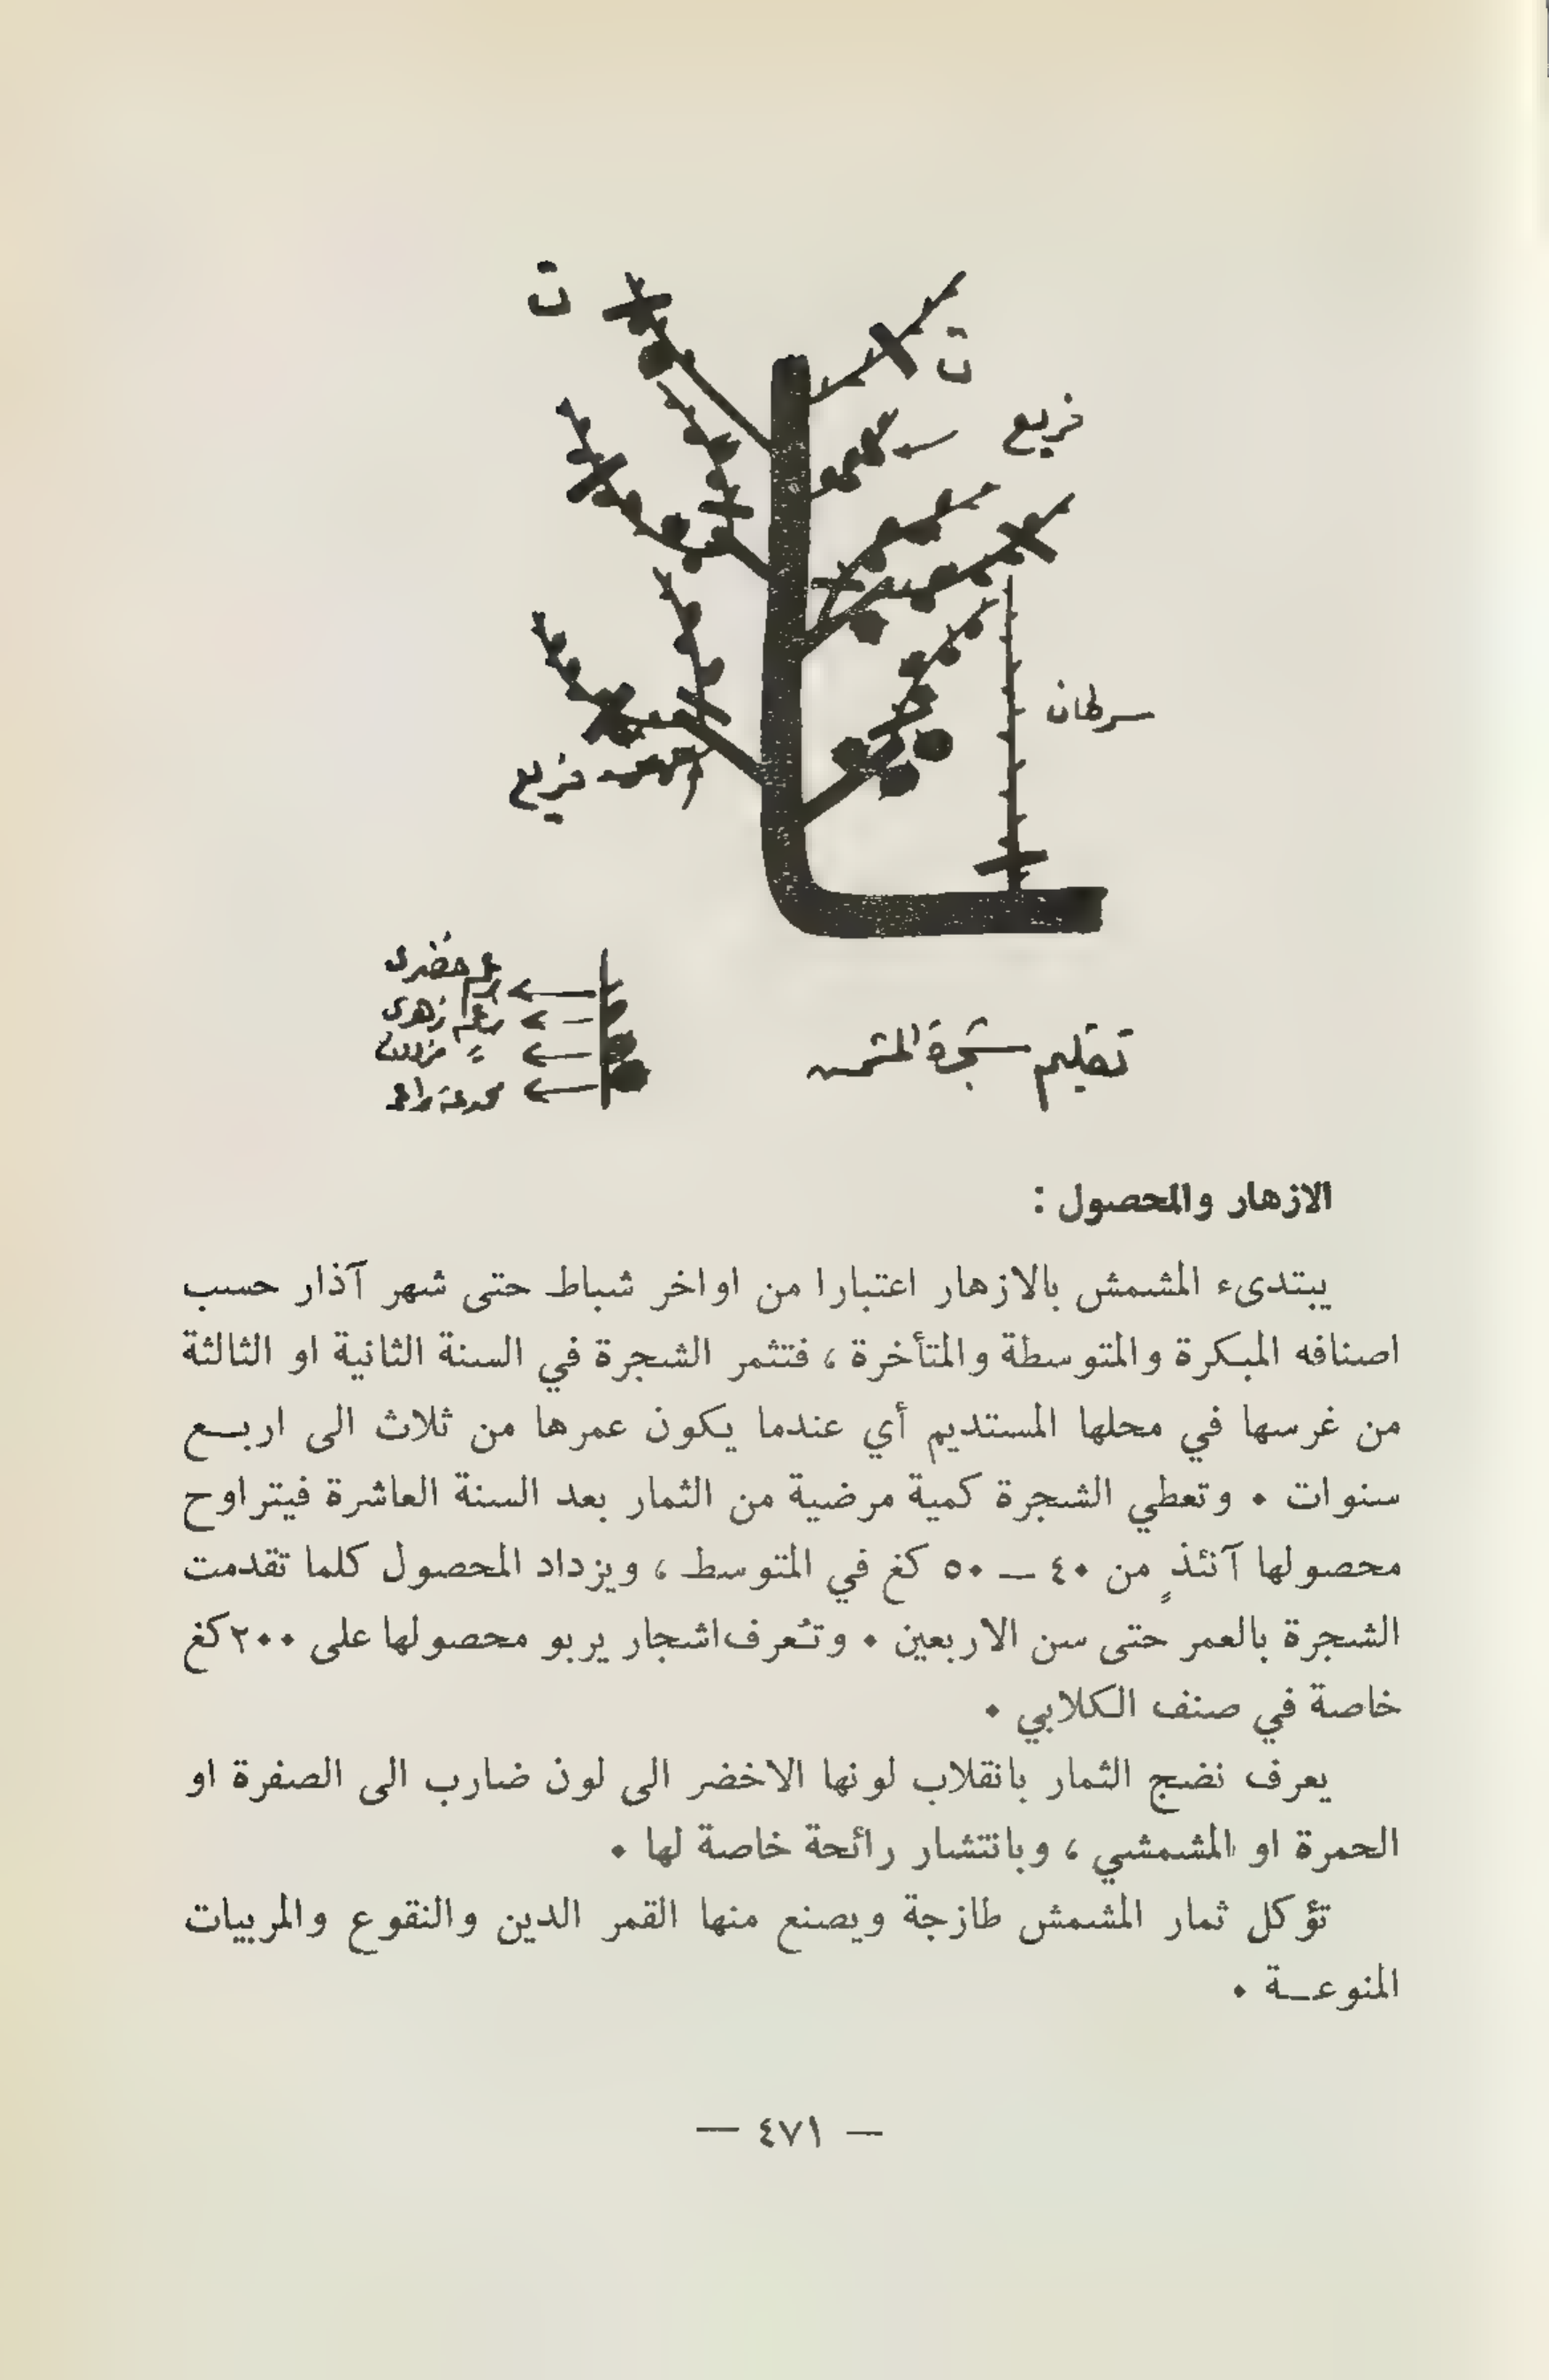 ت
ت
فريع
سرطان
فريع
برعم خضري
برعم زهري
تقليم شجرة المشمش
الازهار والمحصول :
يبتدىء المشمش بالازهار اعتبارا من اواخر شباط حتى شهر آذار حسب
اصنافه المبكرة والمتوسطة والمتأخرة ، فتثمر الشجرة في السنة الثانية او الثالثة
من غرسها في محلها المستديم أي عندما يكون عمرها من ثلاث الى اربــع
سنوات ٠ وتعطي الشجرة كمية مرضية من الثمار بعد السنة العاشرة فيتراوح
محصولها آنئذٍ من ٤٠ ــ ٥٠ كغ في المتوسط ، ويزداد المحصول كلما تقدمت
الشجرة بالعمر حتى سن الاربعين ٠ وتُعرف اشجار يربو محصولها على ٢٠٠ كغ
خاصة في صنف الكلابي ٠
يعرف نضج الثمار بانقلاب لونها الاخضر الى لون ضارب الى الصفرة او
الحمرة او المشمشي ، وبانتشار رائحة خاصة لها ٠
تؤكل ثمار المشمش طازجة ويصنع منها القمر الدين والنقوع والمربيات
المنوعــة ٠
— ٤٧١ —